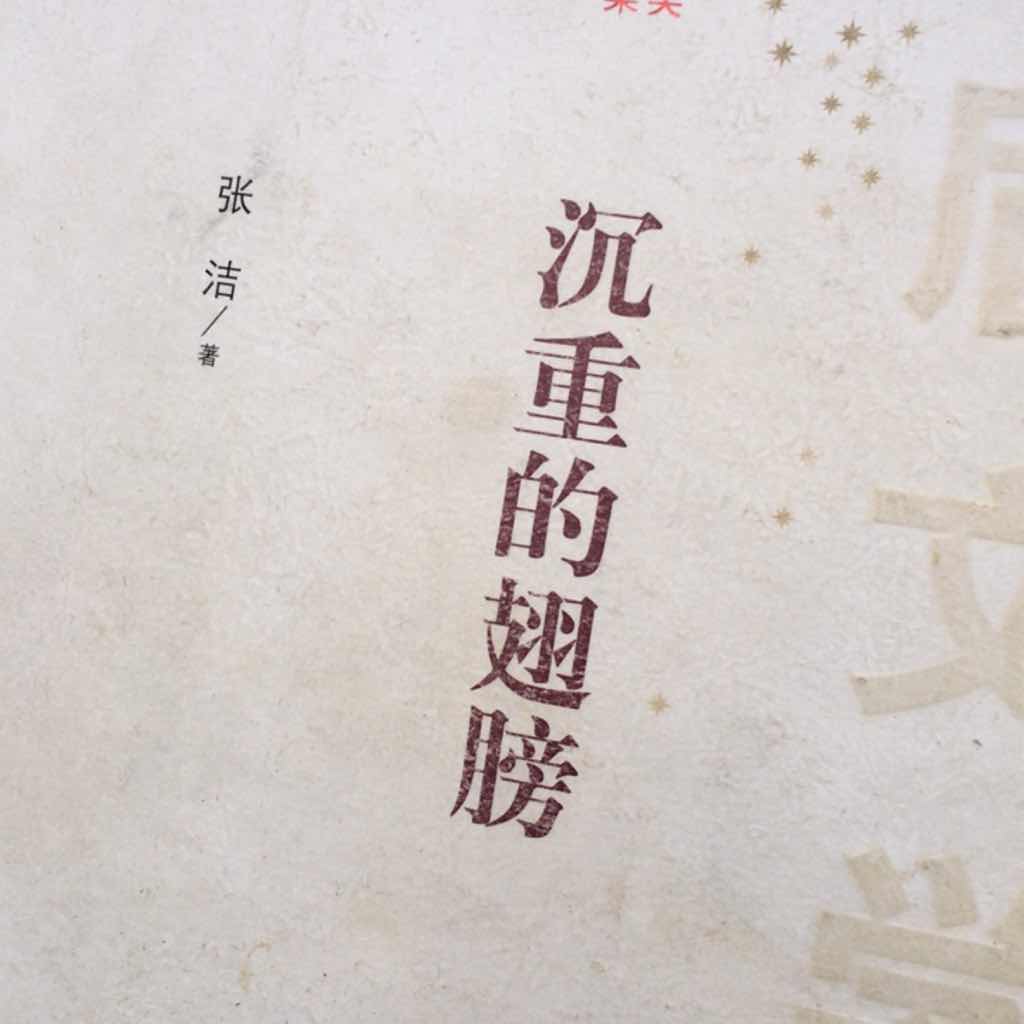 沉重的翅膀
张洁/著
文